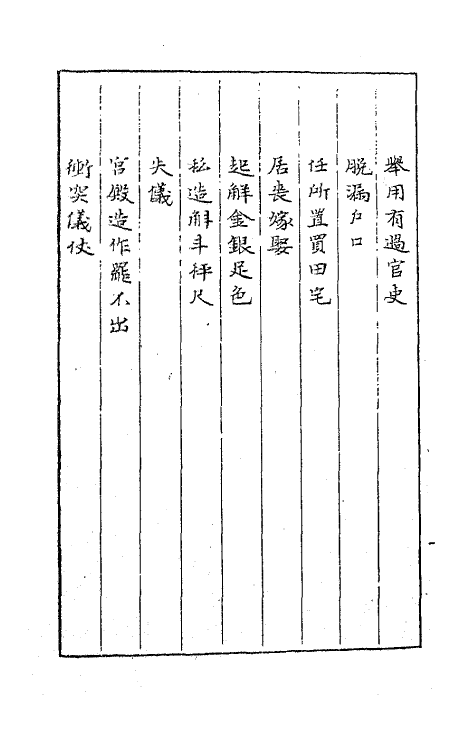 舉用有過官吏
脫漏户口
任所置買田宅
居喪嫁娶
起解金銀足色
私造斛斗秤尺
失儀
宮殿造作罷不出
衝突儀仗